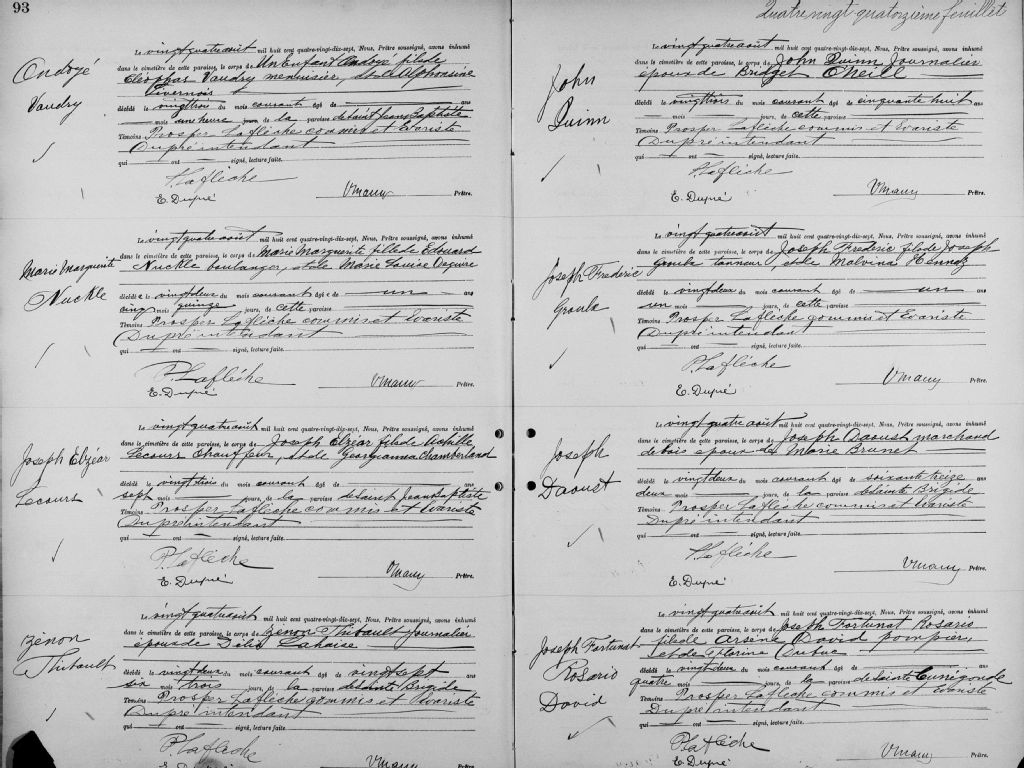 93
Ondoyé
Vaudry
Le vingt quatre août mil huit cent quatre-vingt-dix-sept, Nous, Prêtre soussigné, avons inhumé
dans le cimetière de cette paroisse, le corps de Un Enfant Ondoyé fils de
Cléophas Vaudry menuisier, et de Alphonsine
Livernois
décédé le vingt trois du mois courant âgé de ans
mois une heure jours, de la paroisse de Saint Jean Baptiste
Témoins Prosper Laflèche commis et Evariste
Dupré intendant
qui ont signé, lecture faite.
P. Laflèche
E. Dupré
Prêtre.
Marie Marguerite
Nuckle
Le vingt quatre août mil huit cent quatre-vingt-dix-sept, Nous, Prêtre soussigné, avons inhumé
dans le cimetière de cette paroisse, le corps de Marie Marguerite fille de Edouard
Nuckle boulanger, et de Marie Louise
décédé e le vingt deux du mois courant âgé e de un ans
cinq mois quinze jours, de cette paroisse
Témoins Prosper Laflèche commis et Evariste
Dupré intendant
qui ont signé, lecture faite.
P. Laflèche
E. Dupré
Prêtre.
Joseph Elzéar
Lecourt
Le vingt quatre août mil huit cent quatre-vingt-dix-sept, Nous, Prêtre soussigné, avons inhumé
dans le cimetière de cette paroisse, le corps de Joseph Elzéar fils de Achille
Lecourt Chauffeur, et de Georgianna Chamberland
décédé le vingt trois du mois courant âgé de ans
sept mois jours, de la paroisse de Saint Jean Baptiste
Témoins Prosper Laflèche commis et Evariste
Dupré intendant
qui ont signé, lecture faite.
P. Laflèche
E. Dupré
Prêtre.
Zénon
Thibault
Le vingt quatre août mil huit cent quatre-vingt-dix-sept, Nous, Prêtre soussigné, avons inhumé
dans le cimetière de cette paroisse, le corps de Zénon Thibault Journalier
époux de Délia Lahaise
décédé le vingt deux du mois courant âgé de vingt sept ans
six mois trois jours, de la paroisse de Sainte Brigide
Témoins Prosper Laflèche commis et Evariste
Dupré intendant
qui ont signé, lecture faite.
P. Laflèche
E. Dupré
Prêtre.
Quatre vingt quatorzième feuillet
John
Quinn
Le vingt quatre août mil huit cent quatre-vingt-dix-sept, Nous, Prêtre soussigné, avons inhumé
dans le cimetière de cette paroisse, le corps de John Quinn Journalier
époux de Bridget O'Neill
décédé le vingt trois du mois courant âgé de cinquante huit ans
mois jours, de cette paroisse
Témoins Prosper Laflèche commis et Evariste
Dupré intendant
qui ont signé, lecture faite.
P. Laflèche
E. Dupré
Prêtre.
Joseph Frédéric
Groulx
Le vingt quatre août mil huit cent quatre-vingt-dix-sept, Nous, Prêtre soussigné, avons inhumé
dans le cimetière de cette paroisse, le corps de Joseph Frédéric fils de Joseph
Groulx tanneur, et de Malvina
décédé le vingt deux du mois courant âgé de un ans
un mois jours, de cette paroisse
Témoins Prosper Laflèche commis et Evariste
Dupré intendant
qui ont signé, lecture faite.
P. Laflèche
E. Dupré
Prêtre.
Joseph
Daoust
Le vingt quatre août mil huit cent quatre-vingt-dix-sept, Nous, Prêtre soussigné, avons inhumé
dans le cimetière de cette paroisse, le corps de Joseph Daoust marchand
de bois époux de Marie Brunet
décédé le vingt deux du mois courant âgé de soixante treize ans
deux mois jours, de la paroisse de Sainte Brigide
Témoins Prosper Laflèche commis et Evariste
Dupré intendant
qui ont signé, lecture faite.
P. Laflèche
E. Dupré
Prêtre.
Joseph Fortunat
Rosario
David
Le vingt quatre août mil huit cent quatre-vingt-dix-sept, Nous, Prêtre soussigné, avons inhumé
dans le cimetière de cette paroisse, le corps de Joseph Fortunat Rosario
fils de Arsène David pompier,
et de Florina Dubuc
décédé le vingt deux du mois courant âgé de ans
quatre mois jours, de la paroisse de Sainte Cunégonde
Témoins Prosper Laflèche commis et Evariste
Dupré intendant
qui ont signé, lecture faite.
P. Laflèche
E. Dupré
Prêtre.